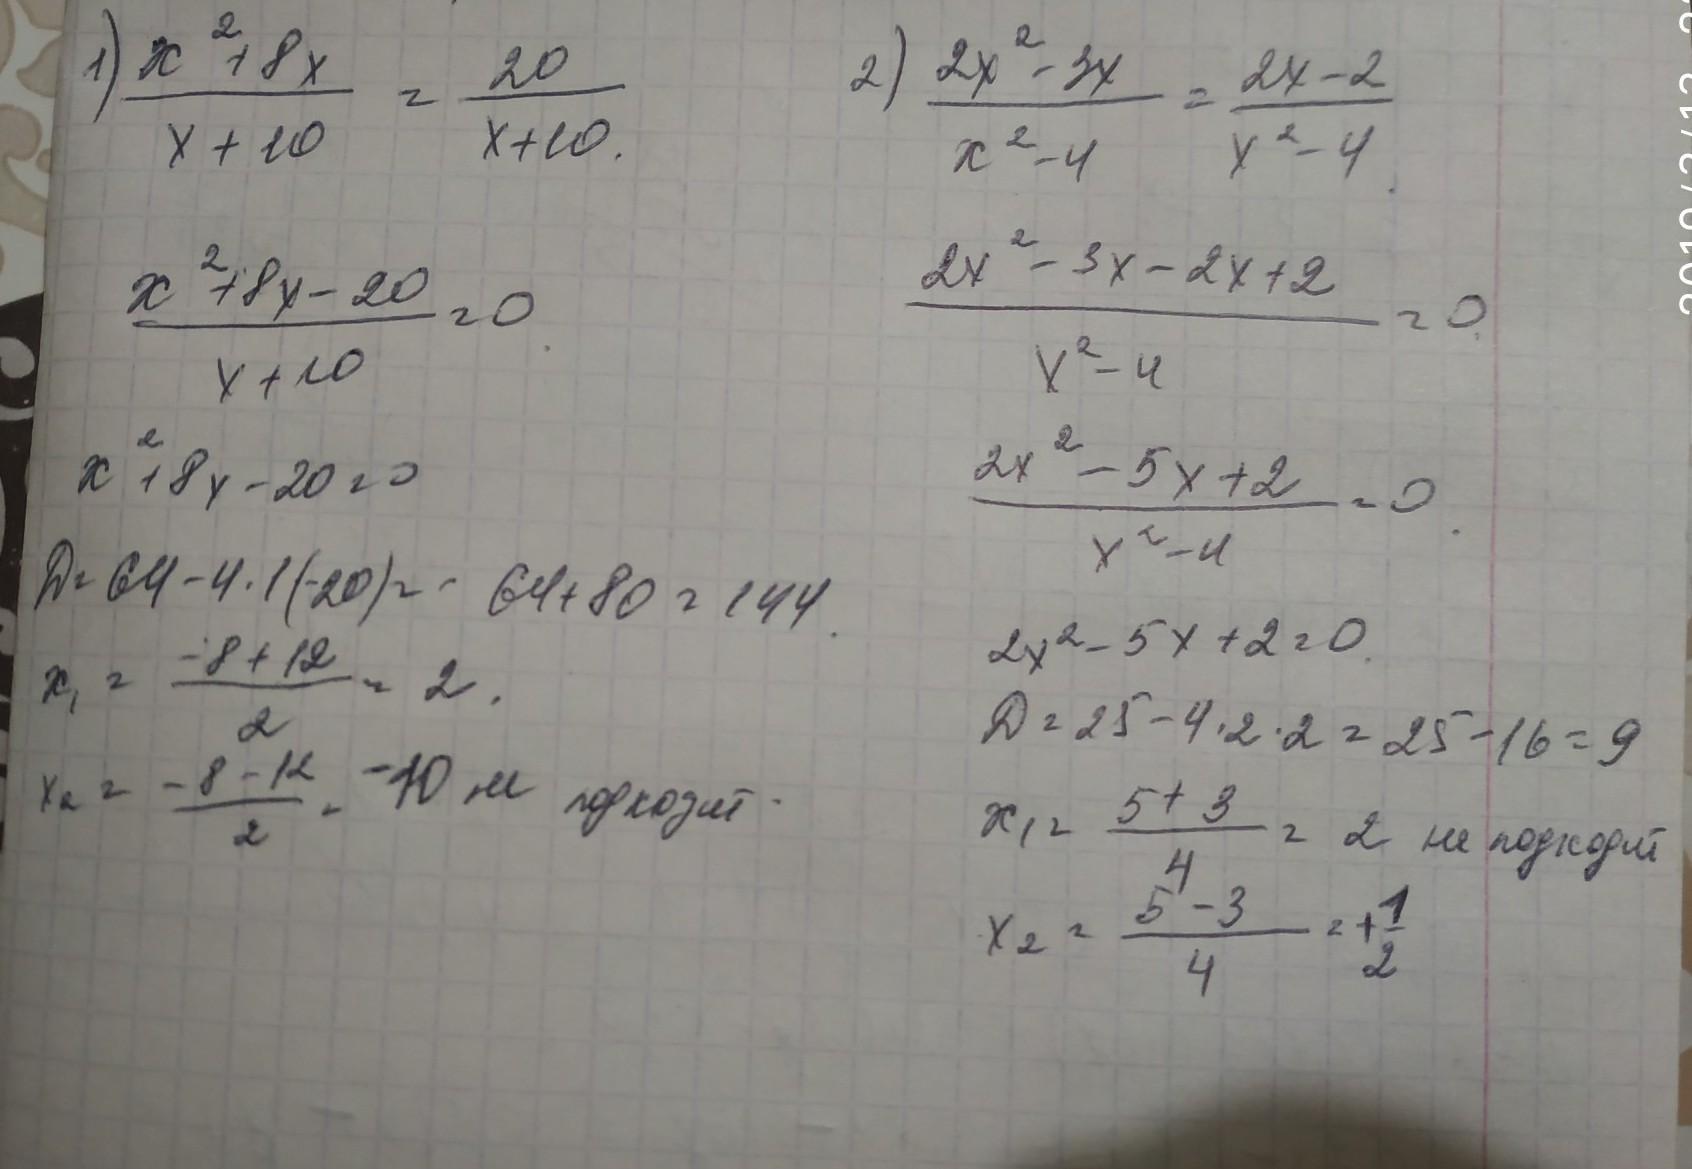 1) x²+8x / x+10 = 20 / x+10.
x²+8x-20 / x+10 = 0
x²+8x-20=0
D=64-4·1(-20)= 64+80=144.
x₁ = -8+12 / 2 = 2.
x₂ = -8-12 / 2 = -10 не подходит.
2) 2x²-3x / x²-4 = 2x-2 / x²-4.
2x²-3x-2x+2 / x²-4 = 0.
2x²-5x+2 / x²-4 = 0.
2x²-5x+2=0.
D=25-4·2·2=25-16=9
x₁= 5+3 / 4 = 2 не подходит
x₂ = 5-3 / 4 = +1/2